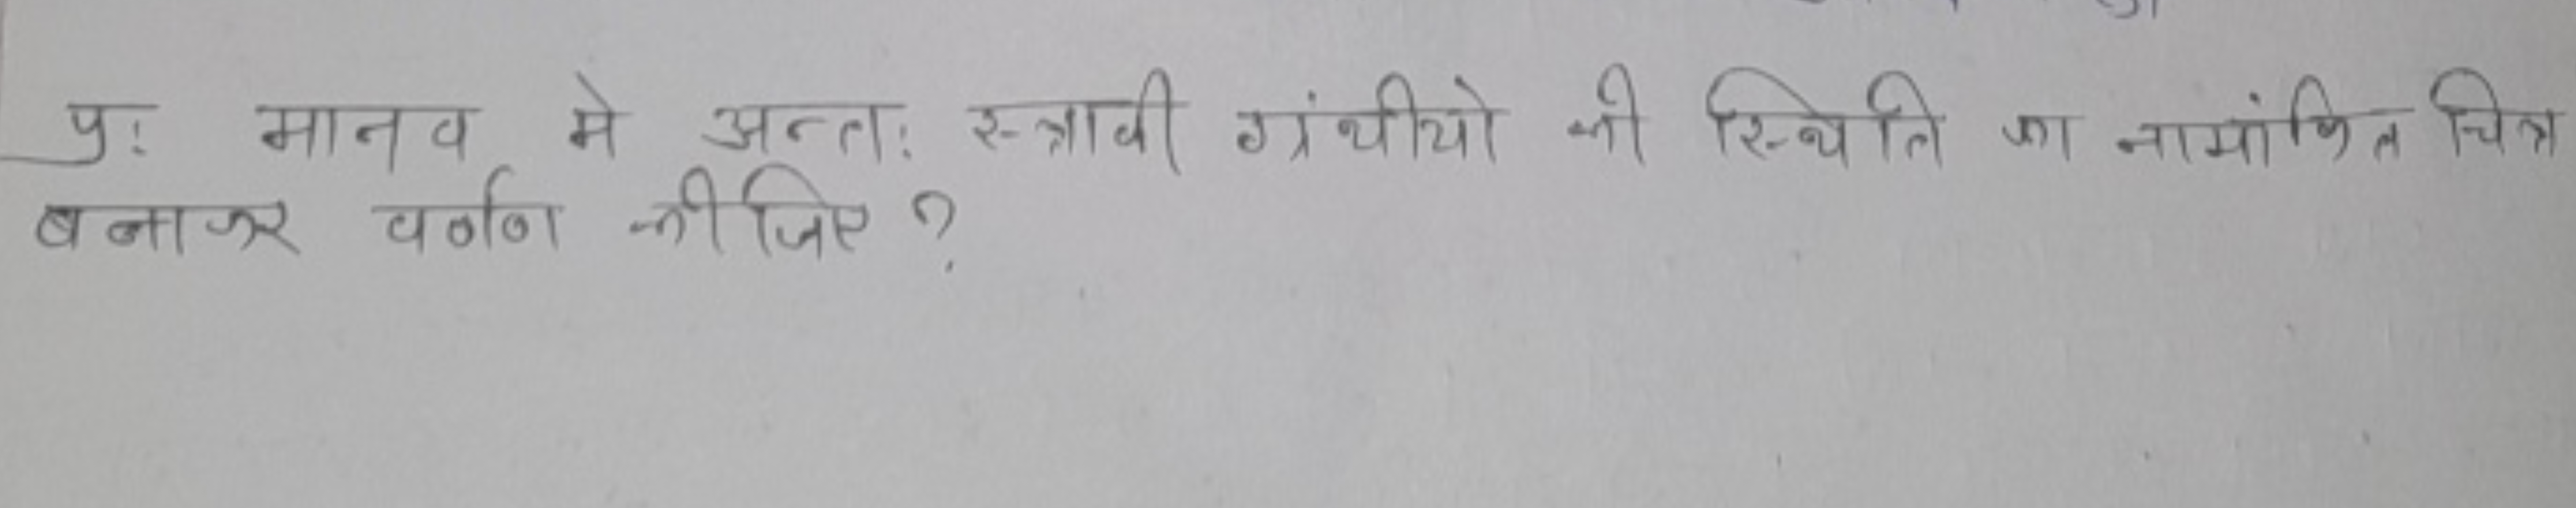 प्र: मानव मे अन्त: स्त्रावी ग्रंथीयो की स्थिति का नामांकित चित्र
बनाकर वर्णण कीजिए ?